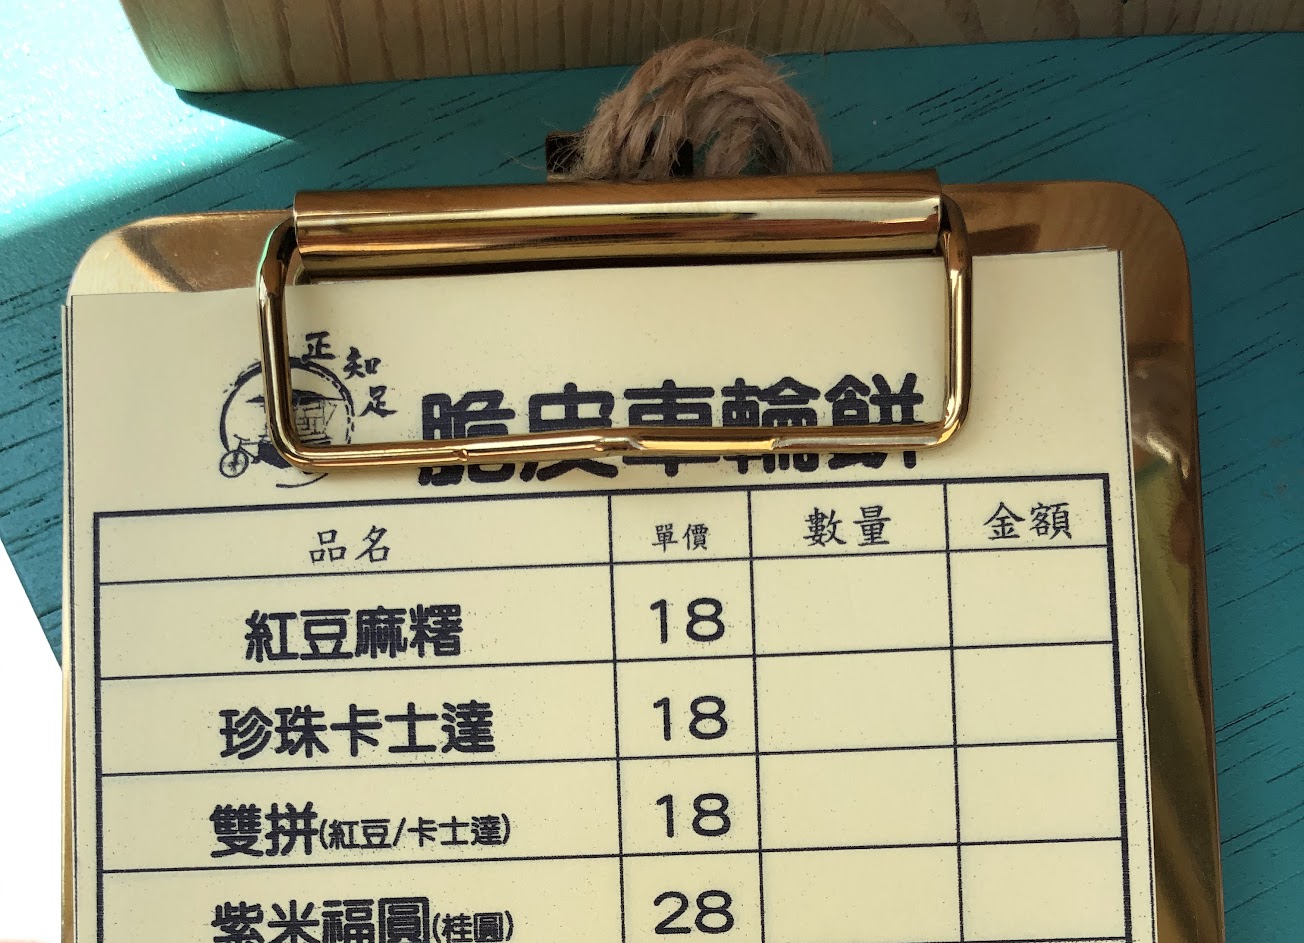 正知足
脆皮車輪餅
品名 單價 數量 金額
紅豆麻糬 18
珍珠卡士達 18
雙拼(紅豆/卡士達) 18
紫米福圓(桂圓) 28